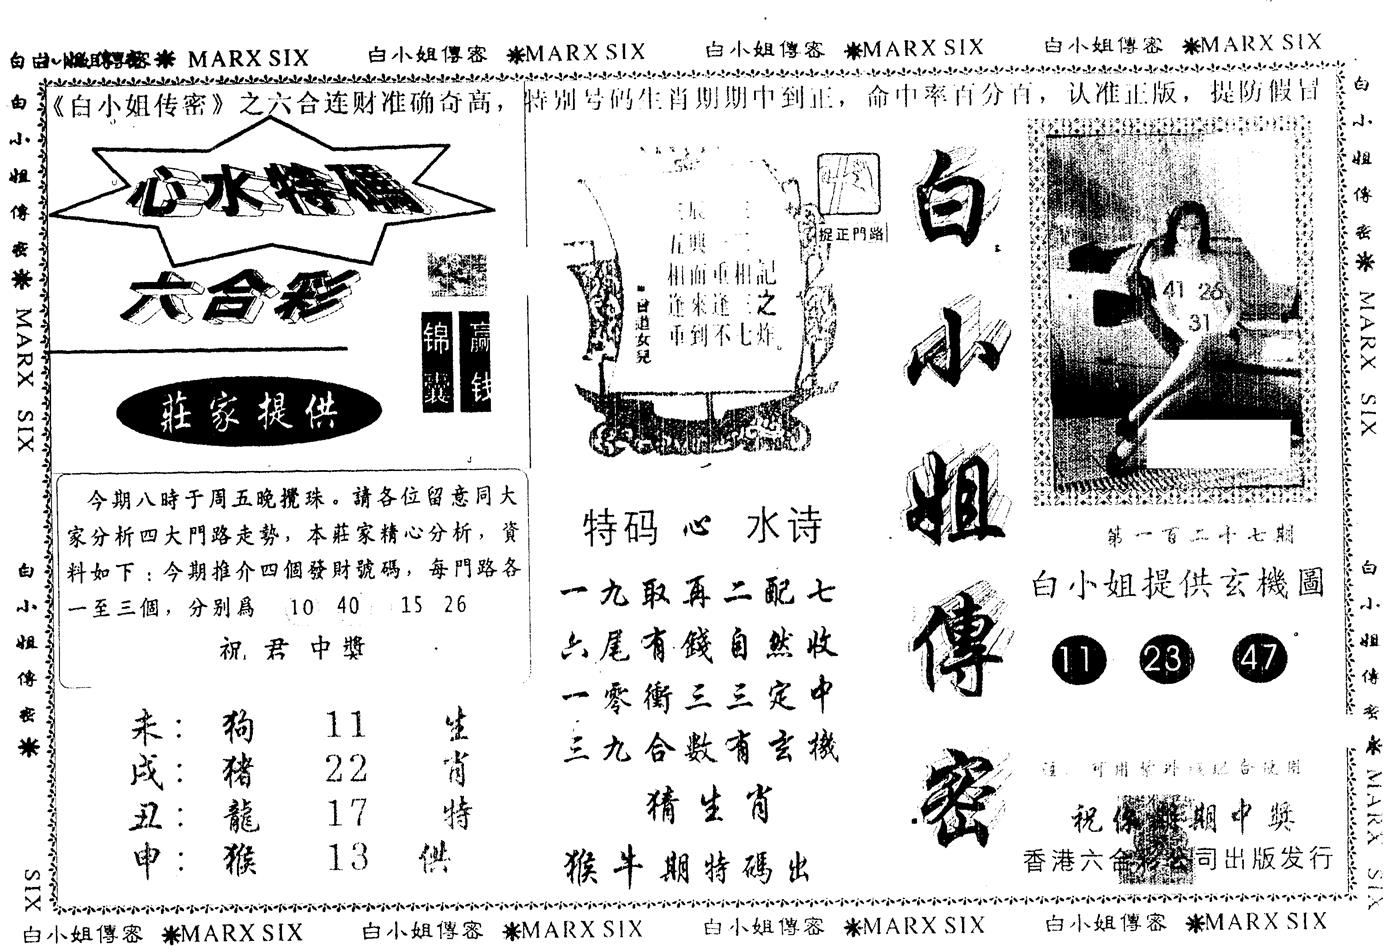 白小姐傳密 ✷ MARX SIX 白小姐傳密 ✷MARX SIX 白小姐傳密 ✷MARX SIX 白小姐傳密 ✷MARX SIX
《白小姐传密》之六合连财准确奇高，特别号码生肖期期中到正，命中率百分百，认准正版，提防假冒
白小姐傳密✷ MARX SIX
白小姐傳密✷
SIX
心水特碼
六合彩
锦囊
赢钱
莊家提供
今期八時于周五晚攪珠。請各位留意同大
家分析四大門路走勢，本莊家精心分析，資
料如下：今期推介四個發財號碼，每門路各
一至三個，分别爲 10 40 15 26
祝君中獎
未：狗 11 生
戌：猪 22 肖
丑：龍 17 特
申：猴 13 供
捉正門路
相而重相記
逢來逢三之
重到不七炸。
特码 心 水诗
一九取再二配七
六尾有錢自然收
一零衝三三定中
三九合數有玄機
猜生肖
猴牛期特碼出
白小姐傳密
41 26
31
第一百二十七期
白小姐提供玄機圖
11 23 47
祝你期期中獎
香港六合彩公司出版发行
白小姐傳密✷ MARX SIX
白小姐傳密✷ MARX SIX
白小姐傳密 ✷MARX SIX 白小姐傳密 ✷MARX SIX 白小姐傳密 ✷MARX SIX 白小姐傳密 ✷MARX SIX